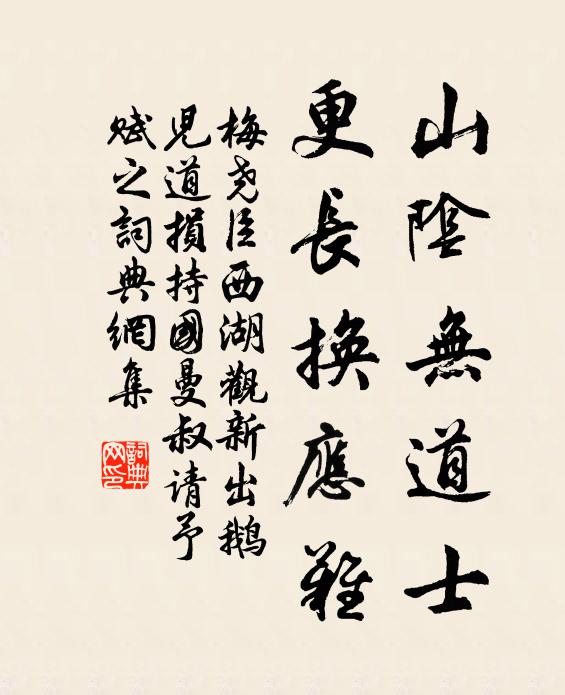 山陰無道士
更長換應難
梅堯臣西湖觀新出鵝
児道損持國曼叔请予
赋之詞典網集
詞典
网印